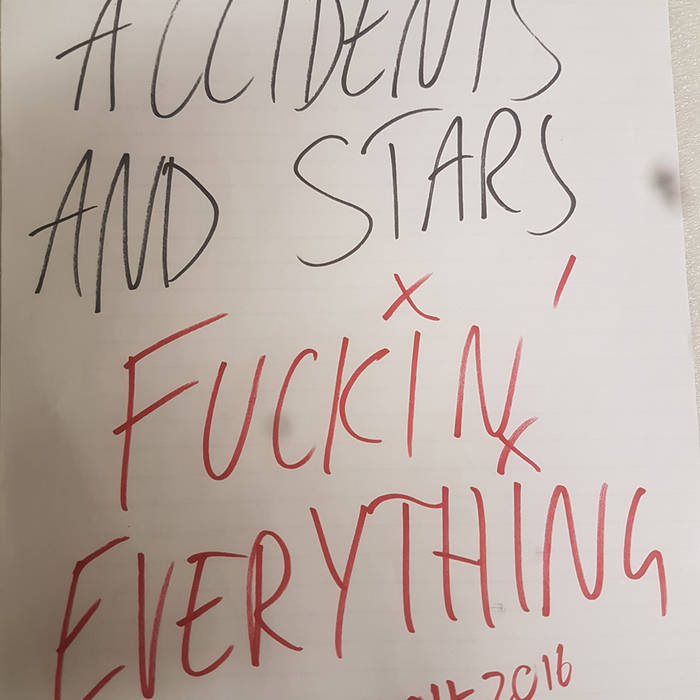 ACCIDENTS
AND STARS
FUCKIN'
EVERYTHING
2016